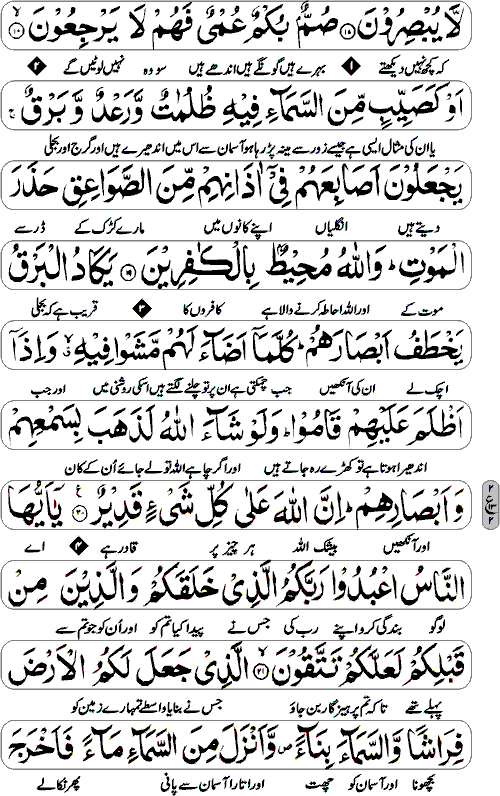 لَّا يُبْصِرُوْنَ ﴿۱۷﴾ صُمٌّۢ بُكْمٌ عُمْىٌ فَهُمْ لَا يَرْجِعُوْنَ ﴿۱۸﴾
کہ کچھ نہیں دیکھتے ۱ بہرے ہیں گونگے ہیں اندھے ہیں سو وہ نہیں لوٹیں گے ۲
اَوْ كَصَيِّبٍ مِّنَ السَّمَآءِ فِيْهِ ظُلُمٰتٌ وَّرَعْدٌ وَّبَرْقٌ ۚ
یا ان کی مثال ایسی ہے جیسے زور سے مینہ پڑ رہا ہو آسمان سے اس میں اندھیرے ہیں اور گرج اور بجلی
يَجْعَلُوْنَ اَصَابِعَهُمْ فِىْٓ اٰذَانِهِمْ مِّنَ الصَّوَاعِقِ حَذَرَ
دیتے ہیں انگلیاں اپنے کانوں میں مارے کڑک کے ڈر سے
الْمَوْتِ ؕ وَاللّٰهُ مُحِيْطٌۢ بِالْكٰفِرِيْنَ ﴿۱۹﴾ يَكَادُ الْبَرْقُ
موت کے اور اللہ احاطہ کرنے والا ہے کافروں کا ۳ قریب ہے کہ بجلی
يَخْطَفُ اَبْصَارَهُمْ ؕ كُلَّمَآ اَضَآءَ لَهُمْ مَّشَوْا فِيْهِ ۙ وَاِذَآ
اچک لے ان کی آنکھیں جب چمکتی ہے ان پر تو چلنے لگتے ہیں اسکی روشنی میں اور جب
اَظْلَمَ عَلَيْهِمْ قَامُوْا ؕ وَلَوْ شَآءَ اللّٰهُ لَذَهَبَ بِسَمْعِهِمْ
اندھیرا ہوتا ہے تو کھڑے رہ جاتے ہیں اور اگر چاہے اللہ تو لے جائے اُن کے کان
وَاَبْصَارِهِمْ ؕ اِنَّ اللّٰهَ عَلٰى كُلِّ شَىْءٍ قَدِيْرٌ ﴿۲۰﴾ يٰٓاَيُّهَا
اور آنکھیں بیشک اللہ ہر چیز پر قادر ہے ۴ اے
النَّاسُ اعْبُدُوْا رَبَّكُمُ الَّذِىْ خَلَقَكُمْ وَالَّذِيْنَ مِنْ
لوگو بندگی کرو اپنے رب کی جس نے پیدا کیا تم کو اور اُن کو جو تم سے
قَبْلِكُمْ لَعَلَّكُمْ تَتَّقُوْنَ ﴿۲۱﴾ الَّذِىْ جَعَلَ لَكُمُ الْاَرْضَ
پہلے تھے تاکہ تم پرہیزگار بن جاؤ جس نے بنایا واسطے تمہارے زمین کو
فِرَاشًا وَّالسَّمَآءَ بِنَآءً ۪ وَّاَنْزَلَ مِنَ السَّمَآءِ مَآءً فَاَخْرَجَ
بچھونا اور آسمان کو چھت اور اتارا آسمان سے پانی پھر نکالے